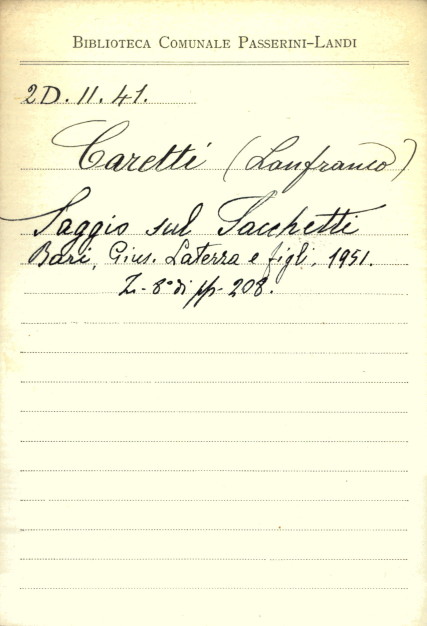 BIBLIOTECA COMUNALE PASSERINI-LANDI
2D. II. 41.
Caretti (Lanfranco)
Saggio sul Sacchetti
Bari, Gius. Laterza e figli, 1951.
8° di pp. 208.